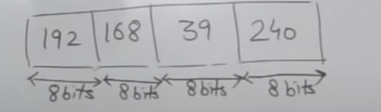 192 168 39 240
8bits 8bits 8bits 8bits